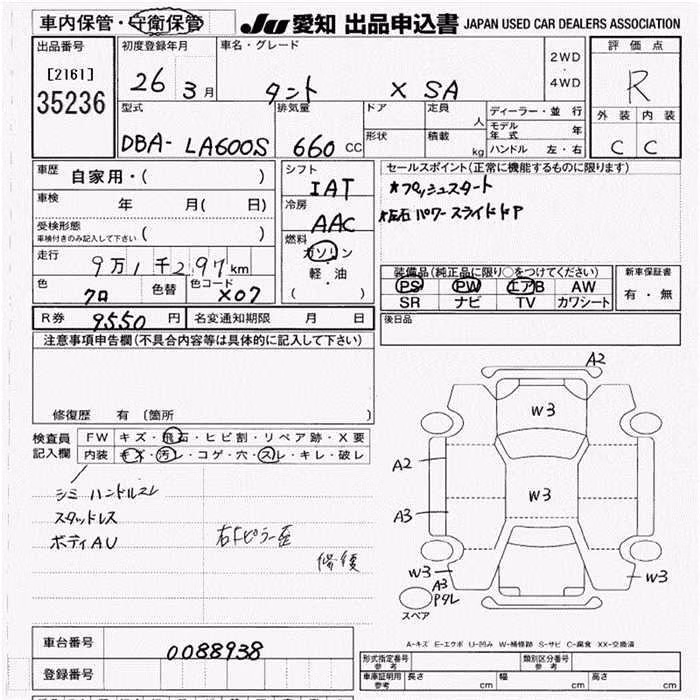 車内保管・守衛保管 JU 愛知 出品申込書 JAPAN USED CAR DEALERS ASSOCIATION
出品番号 初度登録年月 車名・グレード 2WD・4WD 評価点
[2161] 26 3月 タント X SA R
35236
型式 排気量 ドア 定員 人 ディーラー・並行 外装 内装
DBA-LA600S 660 CC 形状 積載 kg モデル年式 年 C C
ハンドル 左・右
車歴 自家用・( ) シフト セールスポイント(正常に機能するものに限ります)
IAT ★プッシュスタート
車検 年 月( 日) 冷房 ★左右パワースライドドア
受検形態 AAC
車検付きのみ記入して下さい ( ) 燃料
走行 9万1千297km ガソリン 装備品(純正品に限り○をつけてください) 新車保証書
軽・油 PS PW エアB AW 有・無
色 クロ 色替 色コード X07 ( ) SR ナビ TV カワシート
R券 9550円 名変通知期限 月 日 後日品
注意事項申告欄(不具合内容等は具体的に記入して下さい)
修復歴 有 〔箇所 〕
検査員記入欄 FW キズ・飛石・ヒビ割・リペア跡・X要
内装 キズ・汚レ・コゲ・穴・スレ・キレ・破レ
シミ ハンドルスレ
スタッドレス
ボディAU
右Fピラー歪
修復
A2
W3
A2
W3
A3
W3 A3 W3
スペア Pタレ
A-キズ E-エクボ U-凹み W-補修跡 S-サビ C-腐食 XX-交換済
車台番号 0088938 形式指定番号 参考 類別区分番号 参考
登録番号 車庫証明用 参考 長さ cm 幅 cm 高さ cm